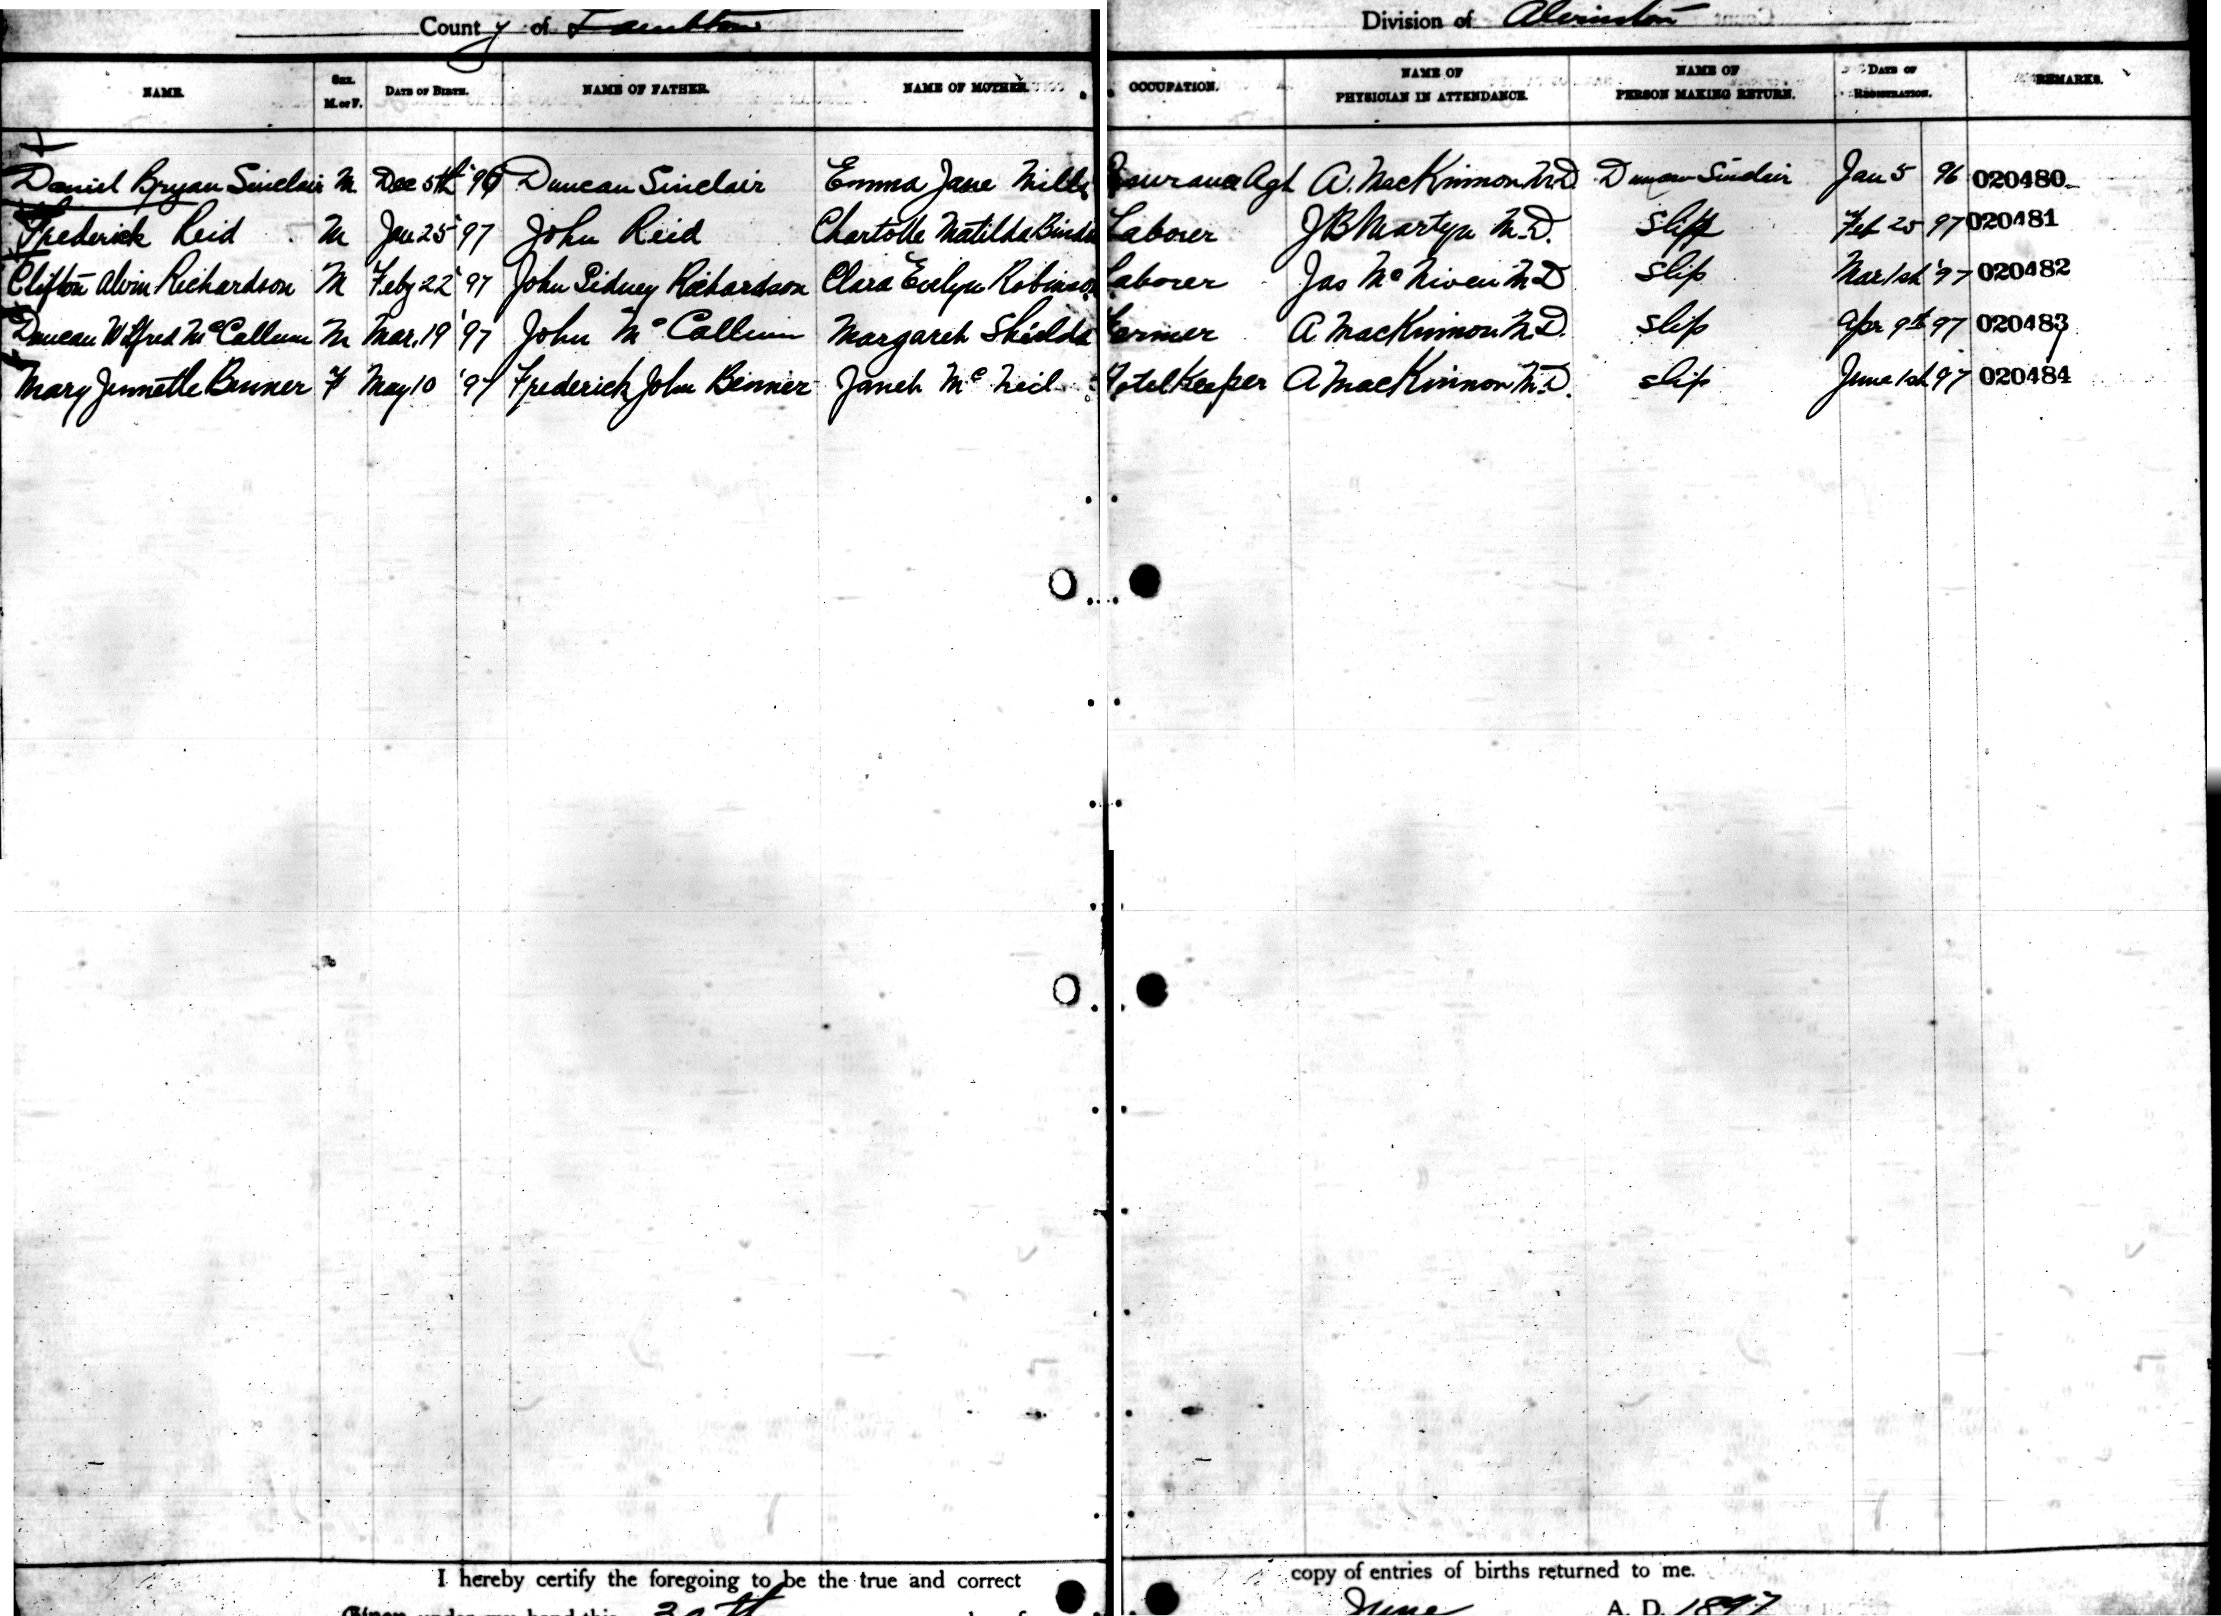 County of Lambton Division of Alvinston
NAME. SEX. M. or F. DATE OF BIRTH. NAME OF FATHER. NAME OF MOTHER. OCCUPATION. NAME OF PHYSICIAN IN ATTENDANCE. NAME OF PERSON MAKING RETURN. DATE OF REGISTRATION. REMARKS.
Daniel Bryan Sinclair M Dec 5th '96 Duncan Sinclair Emma Jane Mills Insurance Agt A. MacKinnon M.D. Duncan Sinclair Jan 5 96 020480
Frederick Reid M Jan 25 '97 John Reid Charlotte Matilda Laborer J B Martyn M.D. slip Feb 25 97 020481
Clifton Alvin Richardson M Feby 22 '97 John Sidney Richardson Clara Evelyn Robinson Laborer Jas McNiven M D slip Mar 1st '97 020482
Duncan Wilfred McCallum M Mar. 19 '97 John McCallum Margaret Shields Farmer A MacKinnon M.D. slip Apr 9th 97 020483
Mary Jennette Benner F May 10 '97 Frederick John Benner Janet McNeil Hotel Keeper A MacKinnon M.D. slip June 1st '97 020484
I hereby certify the foregoing to be the true and correct copy of entries of births returned to me.
Given under my hand this 30th June A. D. 1897